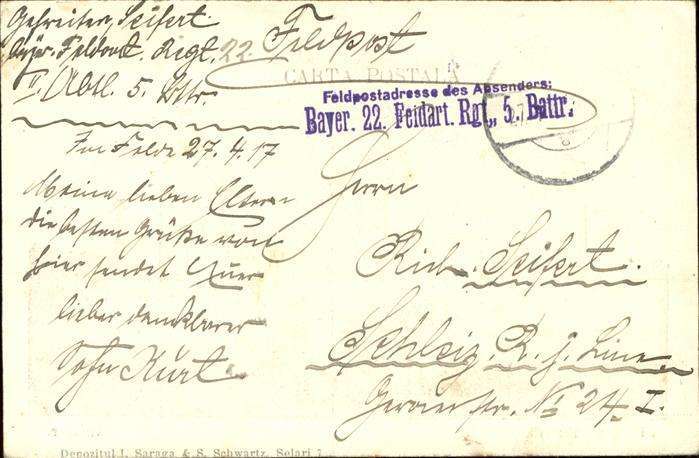 Gefreiter Seifert
Bayr. Feldart. Regt. 22
II. Abtl. 5. Bttr.
Feldpost
CARTA POSTALA
Feldpostadresse des Absenders:
Bayer. 22. Feldart. Rgt., 5. Battr.
Im Felde 27.4.17
Meine lieben Eltern
die besten Grüße von
hier sendet Euer
lieber dankbarer
Sohn Kurt.
Herrn
Rich. Seifert.
Schleiz. R. j. Linie
Geraerstr. No 24 I.
Depozitul I. Saraga & S. Schwartz, Selari 7